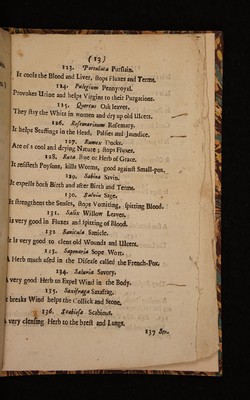 (13)
123. Portulaca Purslain.
It cools the Blood and Liver, stops Fluxes and Terms.
124. Pulegium Pennyroyal.
Provokes Urine and helps Virgins to their Purgations.
125. Quercus Oak leaves,
They stay the Whits in women and dry up old Ulcers.
126. Rosmarinum Rosemary.
It helps Stuffings in the Head, Palsies and Jaundice.
127. Rumex Docks.
Are of a cool and drying Nature; stops Fluxes.
128. Ruta Rue or Herb of Grace.
It resisteth Poysons, kills Worms, good against Small-pox.
129. Sabina Savin.
It expells both Birth and after Birth and Terms.
130. Salvia Sage.
It strengthens the Senses, stops Vomiting, spitting Blood.
131. Salix Willow Leaves.
is very good in Fluxes and spitting of Blood.
132 Sanicula Sanicle.
It is very good to clent old Wounds and Ulcers.
133. Saponaria Sope Wort.
A Herb much used in the Disease called the French-Pox.
134. Saturia Savory.
A very good Herb to Expel Wind in the Body.
135. Saxifraga Saxafrag.
It breaks Wind helps the Collick and Stone,
136. Scabiosa Scabious.
A very cleansing Herb to the brest and Lungs.
137 Sco-